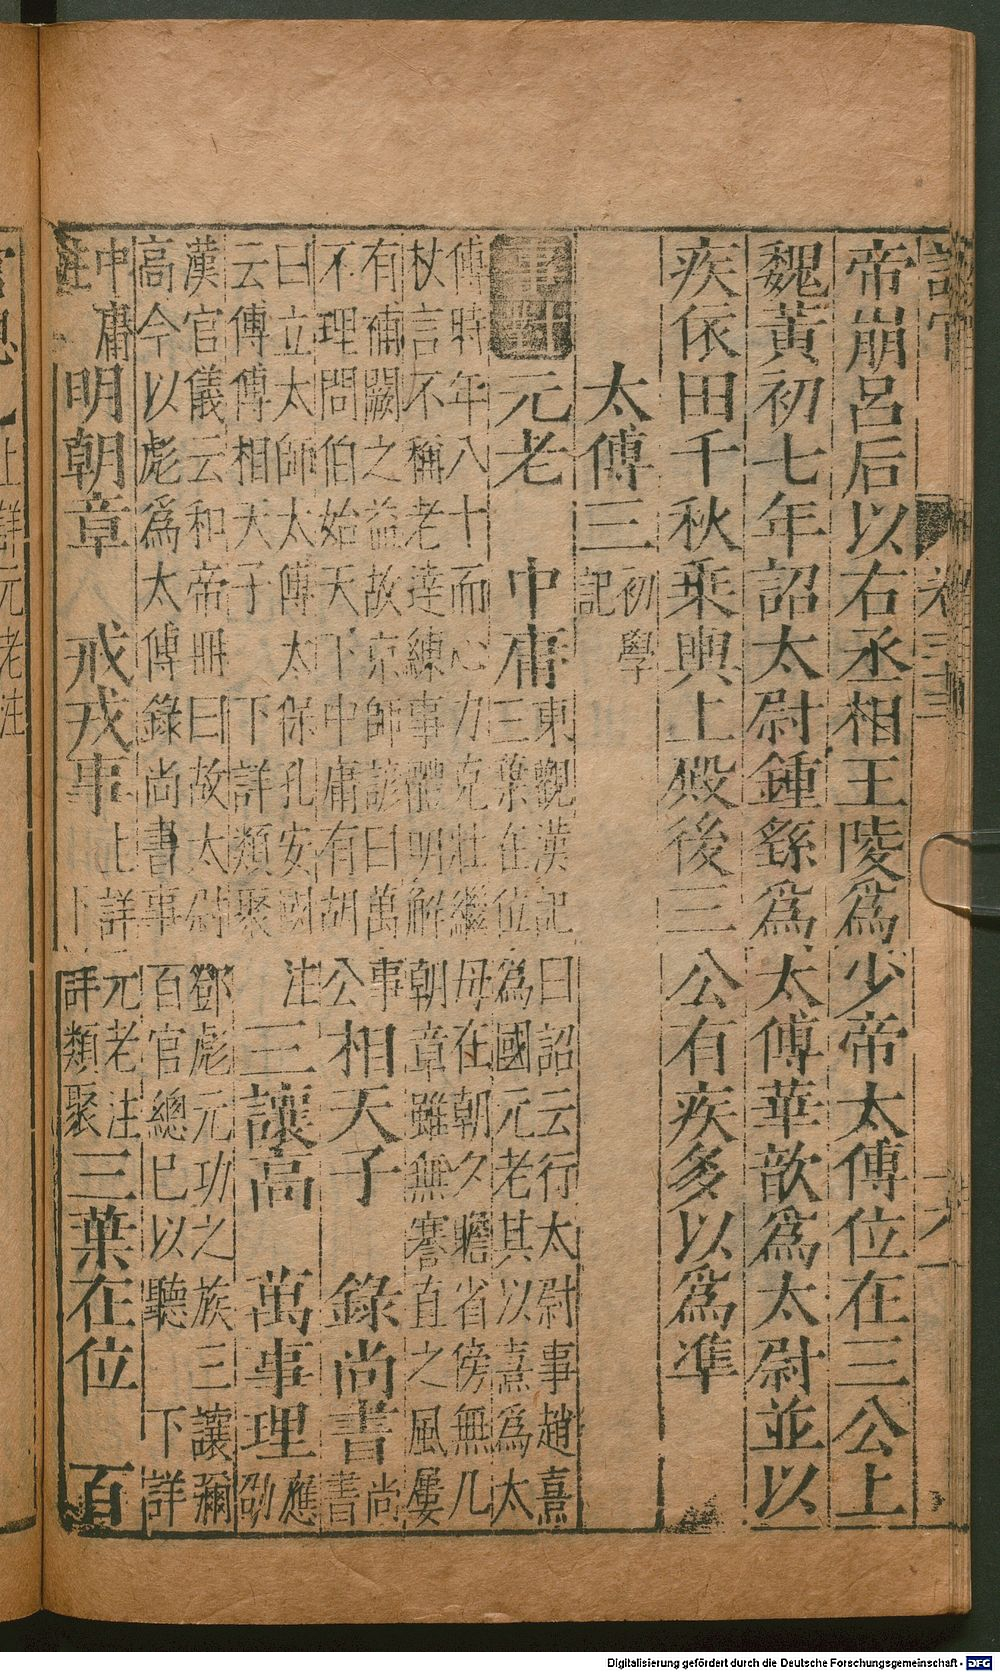 設官 卷三三
帝崩呂后以右丞相王陵爲少帝太傅位在三公上
魏黃初七年詔太尉鍾繇爲太傅華歆爲太尉並以
疾依田千秋乗輿上殿後三公有疾多以爲準
太傅三 初學記
事對 元老 中庸 東觀漢記曰詔云行太尉事趙熹三葉在位爲國元老其以熹爲太
傅時年八十而心力克壯繼母在朝夕瞻省傍無几杖言不稱老達練事體明解朝章雖無謇直之風屢
有補闕之益故京師諺曰萬事不理問伯始天下中庸有胡公 相天子 錄尚書 尚書
曰立太師太傅太保孔安國注云傅傅相天子 下詳類聚 三讓高 萬事理 應劭
漢官儀云和帝冊曰故太尉鄧彪元功之族三讓彌高今以彪爲太傅錄尚書事百官總已以聽 下詳
中庸注 明朝章 戒戎事 上詳元老注下詳類聚 三葉在位 百
上詳元老注
Digitalisierung gefördert durch die Deutsche Forschungsgemeinschaft - DFG